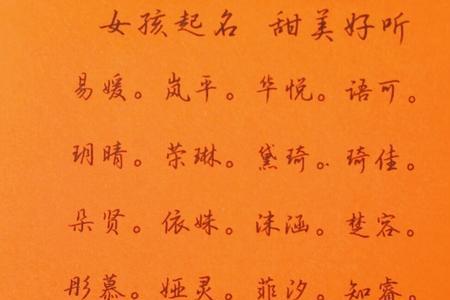 女孩起名 甜美好听
易媛。岚平。华悦。语可。
玥晴。荣琳。黛琦。琦佳。
朵贤。依姝。沫涵。楚容。
彤慕。娅灵。菲汐。知睿。